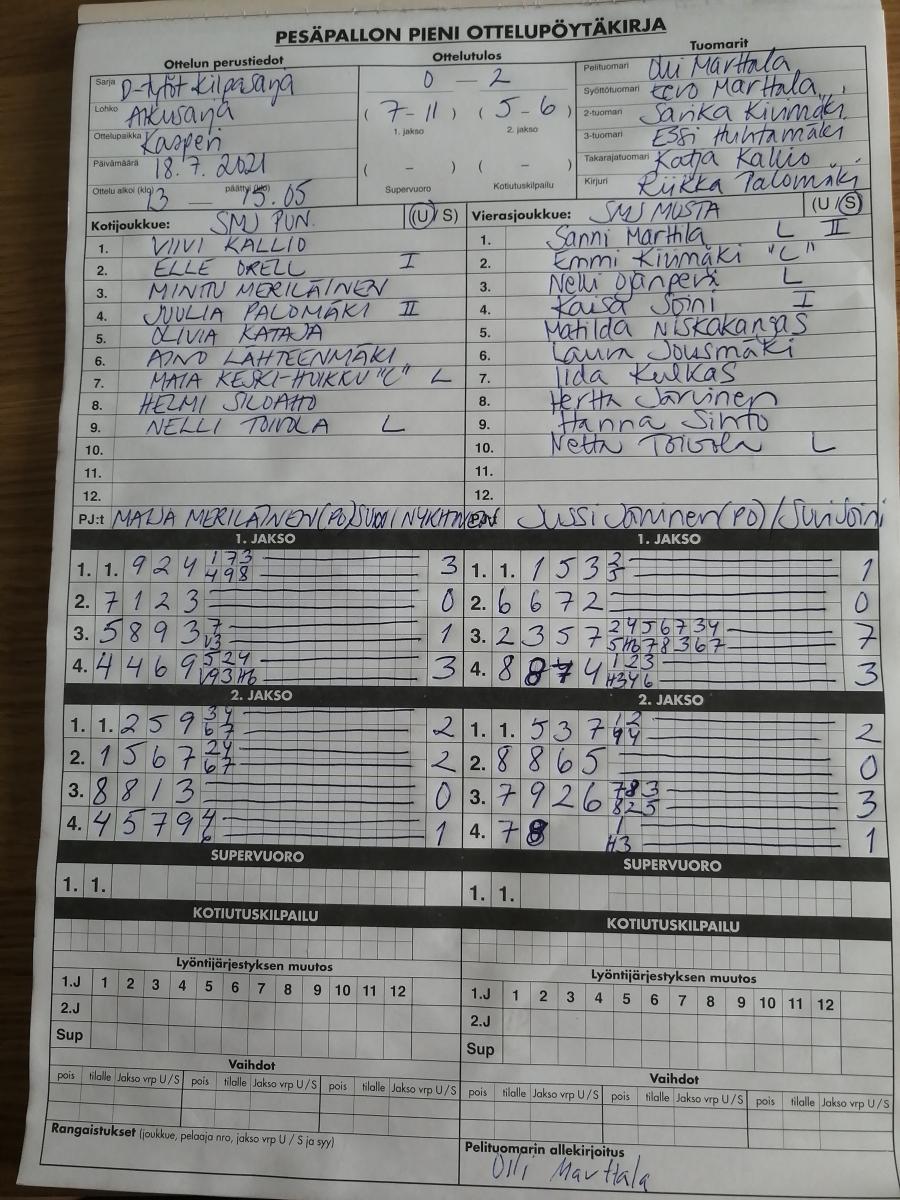 PESÄPALLON PIENI OTTELUPÖYTÄKIRJA
Ottelun perustiedot
Sarja D-tytöt Kilpasarja
Lohko Alkusarja
Ottelupaikka Kasperi
Päivämäärä 18.7.2021
Ottelu alkoi (klo) 13 — päättyi (klo) 15.05
Ottelutulos
0 — 2
(7-11) (5-6)
1. jakso 2. jakso
( - ) ( - )
Supervuoro Kotiutuskilpailu
Tuomarit
Pelituomari Olli Marttala
Syöttötuomari Eero Marttala
2-tuomari Sarika Kivimäki
3-tuomari Essi Huhtamäki
Takarajatuomari Katja Kallio
Kirjuri Riikka Palomäki
Kotijoukkue: SMJ PUN. (U/S)
1. VIIVI KALLIO
2. ELLE ORELL I
3. MINTU MERILÄINEN
4. JUULIA PALOMÄKI II
5. OLIVIA KATAJA
6. AINO LÄHTEENMÄKI
7. MAIA KESKI-HUIKKU "C" L
8. HELMI SILOAHO
9. NELLI TOIVOLA L
10.
11.
12.
PJ:t MAIJA MERILÄINEN (PJ)
Vierasjoukkue: SMJ MUSTA (U/S)
1. Sanni Marttila L II
2. Emmi Kivimäki "C"
3. Nelli Ojanperä L
4. Kaisa Joini I
5. Matilda Niskakangas
6. Laura Jousmäki
7. Iida Kulkas
8. Hertta Järvinen
9. Hanna Sinto
10. Netta Toivola L
11.
12.
Jussi Järvinen (PJ) / Suvi Joini
1. JAKSO
1. 1. 9 2 4 1 7 3 3
4 9 8
2. 7 1 2 3 0
3. 5 8 9 3 7 1
V3
4. 4 4 6 9 5 2 4 3
V9 3 H6
2. JAKSO
1. 1. 2 5 9 3 4 2
6 7
2. 1 5 6 7 2 4 2
6 7
3. 8 8 1 3 0
4. 4 5 7 9 4 1
6
SUPERVUORO
1. 1.
KOTIUTUSKILPAILU
Lyöntijärjestyksen muutos
1.J 1 2 3 4 5 6 7 8 9 10 11 12
2.J
Sup
Vaihdot
pois tilalle Jakso vrp U/S pois tilalle Jakso vrp U/S pois tilalle Jakso vrp U/S
Rangaistukset (joukkue, pelaaja nro, jakso vrp U / S ja syy)
1. JAKSO
1. 1. 1 5 3 3 1
5
2. 6 6 7 2 0
3. 2 3 5 7 2 4 5 6 7 3 4 7
5 H6 7 8 3 6 7
4. 8 8 7 4 1 2 3 3
H3 4 6
2. JAKSO
1. 1. 5 3 7 1 2 2
4 4
2. 8 8 6 5 0
3. 7 9 2 6 7 8 3 3
8 2 5
4. 7 8 1 1
H3
SUPERVUORO
1. 1.
KOTIUTUSKILPAILU
Lyöntijärjestyksen muutos
1.J 1 2 3 4 5 6 7 8 9 10 11 12
2.J
Sup
Vaihdot
pois tilalle Jakso vrp U/S pois tilalle Jakso vrp U/S pois tilalle Jakso vrp U/S
Pelituomarin allekirjoitus
Olli Marttala